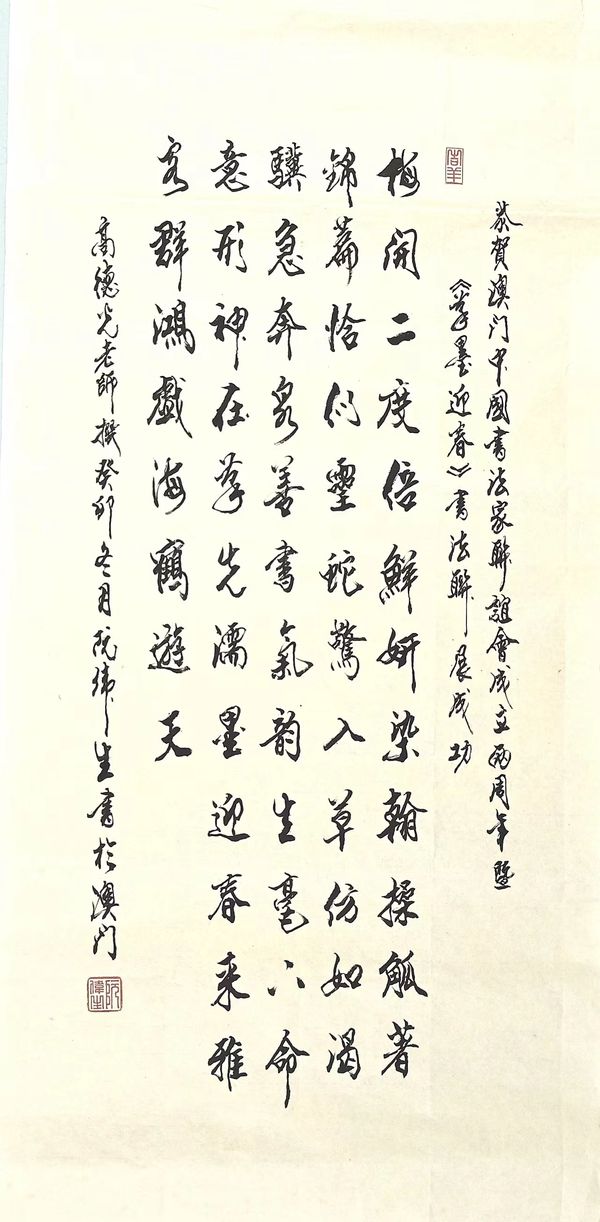 恭賀澳门中國書法家聯誼會成立两周年暨
《拳墨迎春》書法聯展成功
梅開二度倍鮮妍染翰操觚著
錦篇恰似靈蛇驚入草仿如渴
驥急奔泉善書氣韵生毫下命
意形神在拳先濡墨迎春来雅
客群鴻戲海鶴遊天
高德光老師撰癸卯冬月阮偉生書於澳门
阮偉生